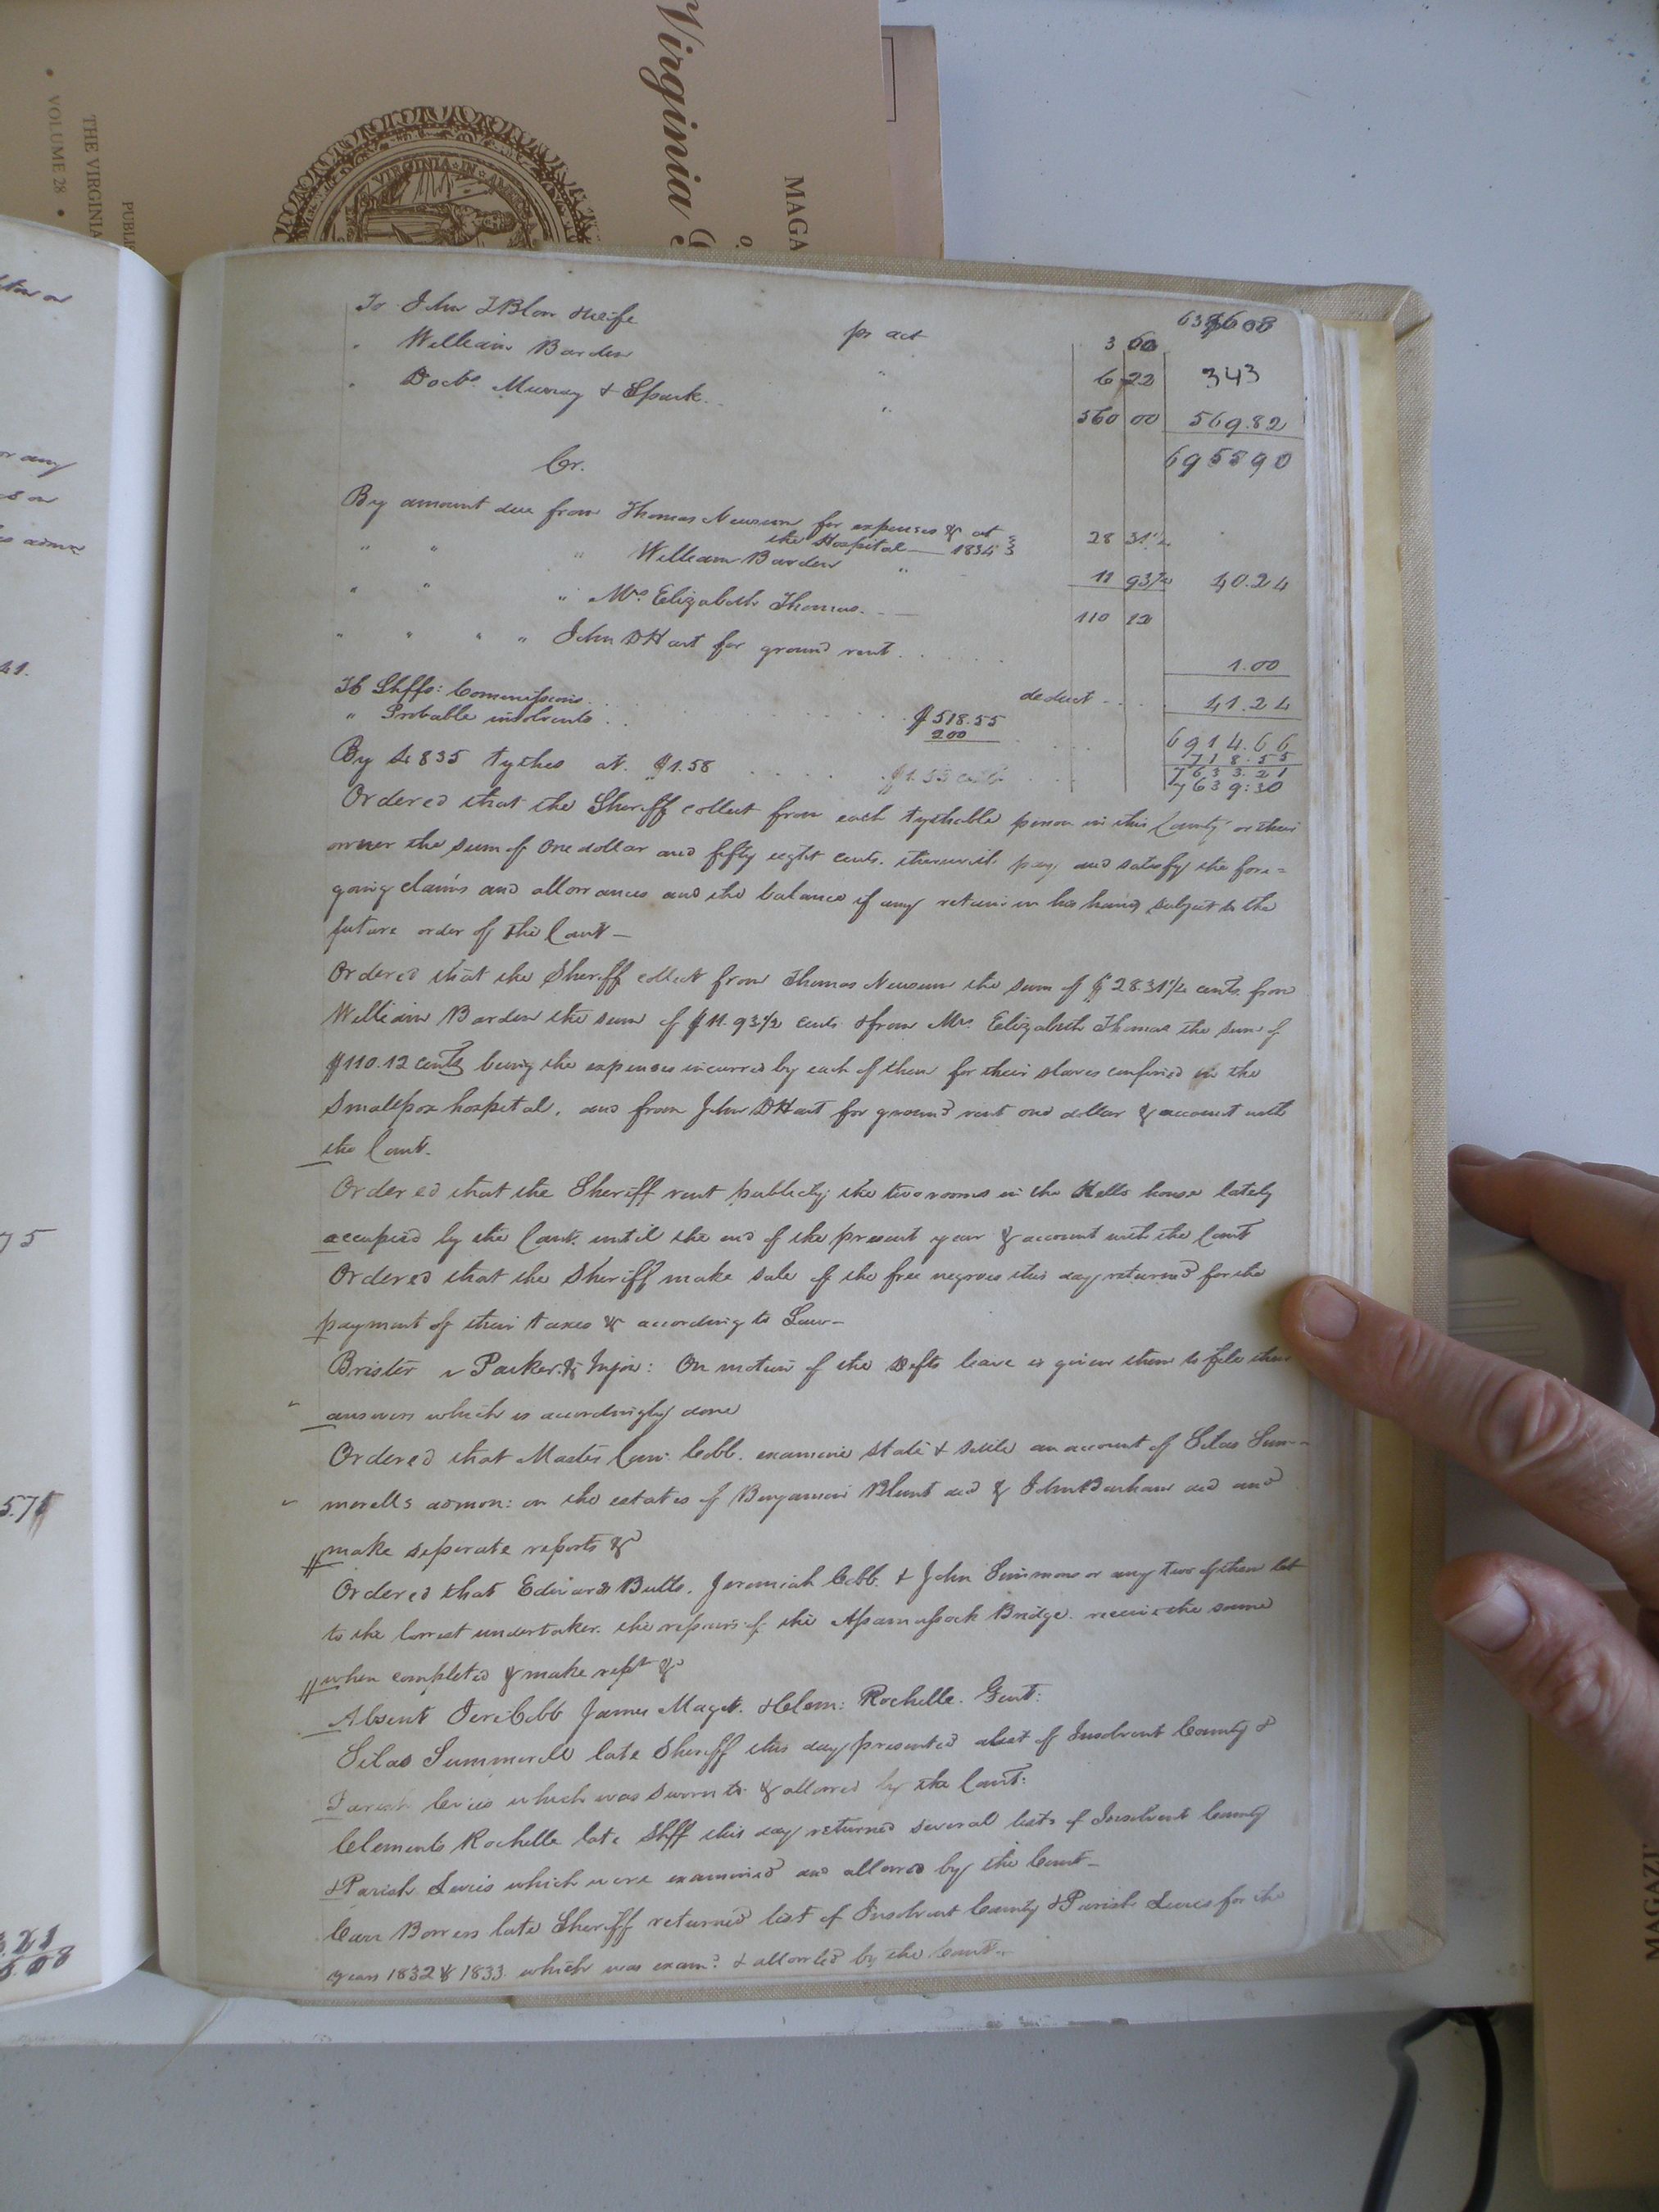 Virginia
MAGA
O
THE VIRGINIA
VOLUME 28
PUBLI
VIRGINIA IN
6386608
To John T Blow & wife pr act 3 60
" William Barden " 6 22 343
" Docts. Murray & Spark. " 560 00 569.82
Cr. 695590
By amount due from Thomas Newsum for expenses &c at
the Hospital — 1834 28 31½
" " " William Barden " 11 93½ 40.24
" " " Mrs Elizabeth Thomas. — 110 12
" " " " John D Hart for ground rent . . . . 1.00
deduct . . . 41.24
To Shffs: Commissions . . . $518.55 6914.66
" Probable insolvents . . 200 718.55
7633.21
By 4835 tythes at $1.58 . . . . 7639:30
Ordered that the Sheriff collect from each tythable person in this County or their
owner the sum of One dollar and fifty eight cents. therewith pay and satisfy the fore=
going claims and allowances and the balance if any retain in his hands subject to the
future order of the Court —
Ordered that the Sheriff collect from Thomas Newsum the sum of $28.31½ cents from
William Barden the sum of $11.93½ cents & from Mrs. Elizabeth Thomas the sum of
$110.12 cents being the expenses incurred by each of them for their slaves confined in the
Smallpox hospital, and from John D Hart for ground rent one dollar & account with
the Court.
Ordered that the Sheriff rent publicly the two rooms in the Kello house lately
occupied by the Court. until the end of the present year & account with the Court
Ordered that the Sheriff make sale of the free negroes this day returned for the
payment of their taxes &c according to Law —
Brister v Parker &c Injn: On motion of the Defts leave is given them to file their
answers which is accordingly done
Ordered that Master Com: Cobb. examine state & settle an account of Silas Sum-
merells admon: on the estates of Benjamin Blunt decd & John Barham decd and
make seperate reports &c
Ordered that Edward Butts. Jeremiah Cobb. & John Simmons or any two of them let
to the lowest undertaker. the repairs of the Assamussock Bridge. receive the same
when completed & make rept &c
Absent Jere: Cobb James Maget. & Clem: Rochelle. Gent:
Silas Summerell late Sheriff this day presented a list of Insolvent County &
Parish levies which was sworn to & allowed by the Court:
Clements Rochelle late Shff this day returned several lists of Insolvent County
& Parish Levies which were examined and allowed by the Court —
Carr Bowers late Sheriff returned list of Insolvent County & Parish Levies for the
years 1832 & 1833 which was examd & allowed by the Court —
or any
41.
75
5.71
MAGAZI